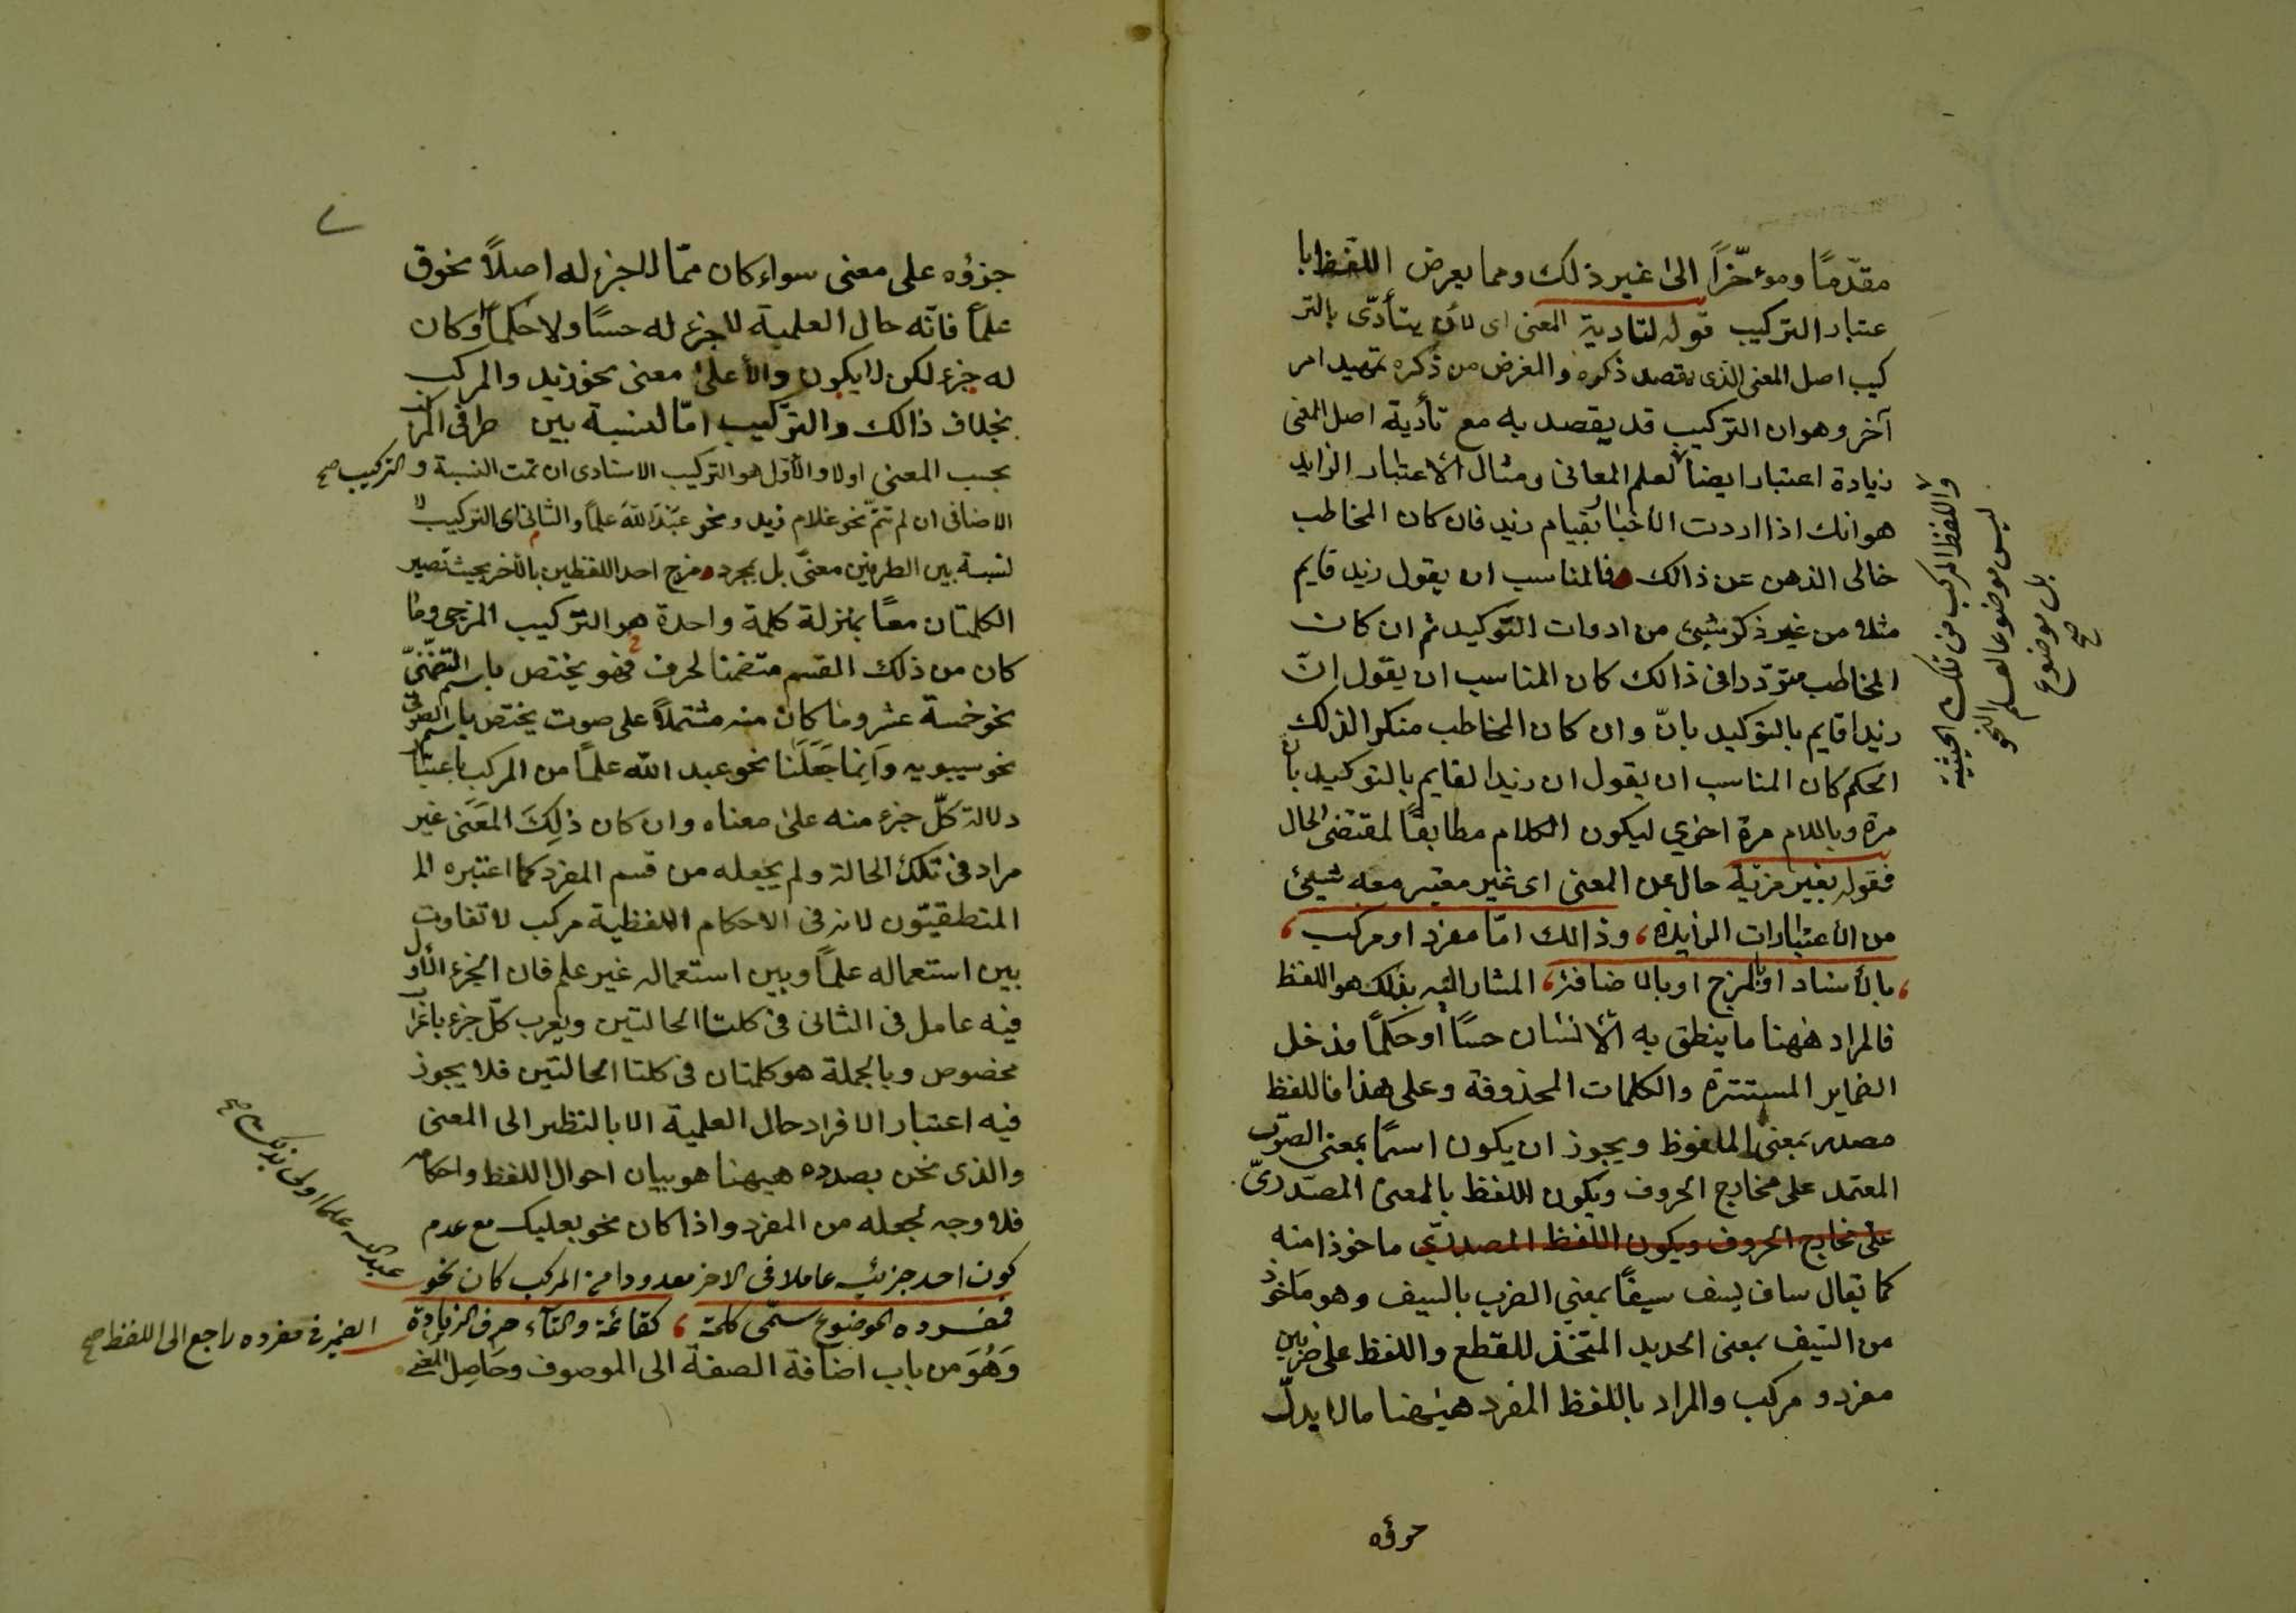 مقدّمًا ومؤخّراً الى غير ذلك ومما يعرض اللفظ با
عتبار التركيب قوله لتادية المعنى اى لأن يتأدّى بالتر
كيب اصل المعنى الذى يقصد ذكره والغرض من ذكره تمهيد امر
آخر وهو ان التركيب قد يقصد به مع تأدية اصل المعنى
زيادة اعتبار ايضا لعلم المعانى ومثال الاعتبار الزايد
هو انك اذا اردت الاخبار بقيام زيد فان كان المخاطب
خالى الذهن عن ذالك فالمناسب ان يقول زيد قايم
مثلا من غير ذكر شيئ من ادوات التوكيد ثم ان كان
المخاطب متردّدا فى ذالك كان المناسب ان يقول انّ
زيدا قايم بالتوكيد بانّ وان كان المخاطب منكرا لذلك
الحكم كان المناسب ان يقول ان زيدا لقايم بالتوكيد بان
مرة وباللام مرة اخري ليكون الكلام مطابقًا لمقتضى الحال
فقوله بغير مزيّة حال عن المعنى اى غير معتبر معه شيئ
من الأعتبارات الزايدة، وذالك امّا مفرد او مركب،
، بالأسناد او بالمزج او بالاضافة، المشار اليه بذلك هو اللفظ
فالمراد ههنا ما ينطق به الانسان حسًا أو حكمًا فدخل
الضماير المستترة والكلمات المحذوفة وعلى هذا فاللفظ
مصدر بمعنى الملفوظ ويجوز ان يكون اسمًا بمعنى الصوت
المعتمد على مخارج الحروف ويكون اللفظ بالمعنى المصدرىّ
على مخارج الحروف ويكون اللفظ المصدريّ ماخوذا منه
كما يقال ساف يسف سيفًا بمعنى الضرب بالسيف وهو مأخوذ
من السيف بمعنى الحديد المتخذ للقطع واللفظ على ضربين
مفرد و مركب والمراد باللفظ المفرد هيهنا مالا يدلّ
واللفظ المركب من تلك الحيثية
ليس موضوعا لعلم النحو
بل موضوع
صح
جزؤه على معنى سواء كان ممّا لا جزء له اصلاً نحو ق
علماً فانّه حال العلمية لا جزء له حسًا ولا حكماً أو كان
له جزء لكن لا يكون دالأ على معنى نحو زيد والمركب
بخلاف ذالك والتركيب امّا لنسبة بين طرفى المركب
بحسب المعنى اولا والأوّل هو التركيب الاسنادى ان تمت النسبة و التركيب صح
الاضافى ان لم تتمّ نحو غلام زيد ونحو عَبْدَ اللهَ علماً والثانى اى التركيب لا
لنسبة بين الطرفين معنىً بل بمجرد مزج احد اللفظين بالأخر بحيث تصير
الكلمتان معاً بمنزلة كلمة واحدة هو التركيب المزجى وما
كان من ذلك القسم متضمنا لحرف فهو يختص باسم التضمّنىّ
نحو خمسة عشر وما كان منه مشتملاً على صوت يختص باسم الصوتى
نحو سيبويه وَاِنما جَعَلَنا نحو عبد الله علمًا من المركب باعتبار
دلالة كلّ جزء منه على معناه وان كان ذلِكَ المَعَنَى غير
مراد فى تلك الحالة ولم يجعله من قسم المفرد كما اعتبره الـ
المنطقيّون لانه فى الاحكام اللفظية مركب لا تفاوت
بين استعماله علماً وبين استعماله غير علم فان الجزء الأول
فيه عامل فى الثانى فى كلتا الحالتين ويعرب كلّ جزء باعراب
مخصوص وبالجملة هو كلمتان فى كلتا الحالتين فلا يجوز
فيه اعتبار الافراد حال العلمية الا بالنظر الى المعنى
والذى نحن بصدده هيهنا هو بيان احوال اللفظ واحكامه
فلا وجه لجعله من المفرد واذا كان نحو بعلبك مع عدم
كون احد جزئيه عاملا فى الاخر معدودا من المركب كان نحو
عبد الله علما اولى بذلك صح
فمفرده الموضوع سمّى كلمة، كقائمة والتآء حرف الزيادة
الضمير فى مفرده راجع الى اللفظ صح
وَهُوَ من باب اضافة الصفة الى الموصوف وحَاصِل المعنى